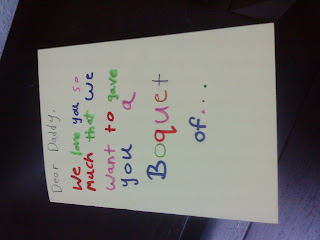 Dear Daddy,
We love you so
much that we
want to gave
you a
Boquet
of...